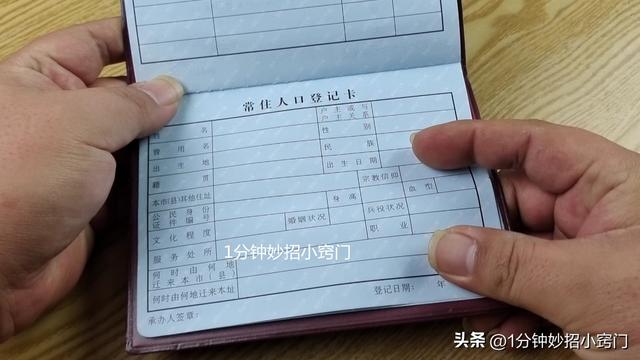 常住人口登记卡
姓 名 户主或与户主关系
曾用名 性 别
出生地 民 族
籍 贯 出生日期
本市(县)其他住址 宗教信仰
公民身份证件编号 身 高 血型
文化程度 婚姻状况 兵役状况
服务处所 职 业
何时由何地迁来本市(县)
何时由何地迁来本址
承办人签章: 登记日期: 年
1分钟妙招小窍门
头条 @1分钟妙招小窍门